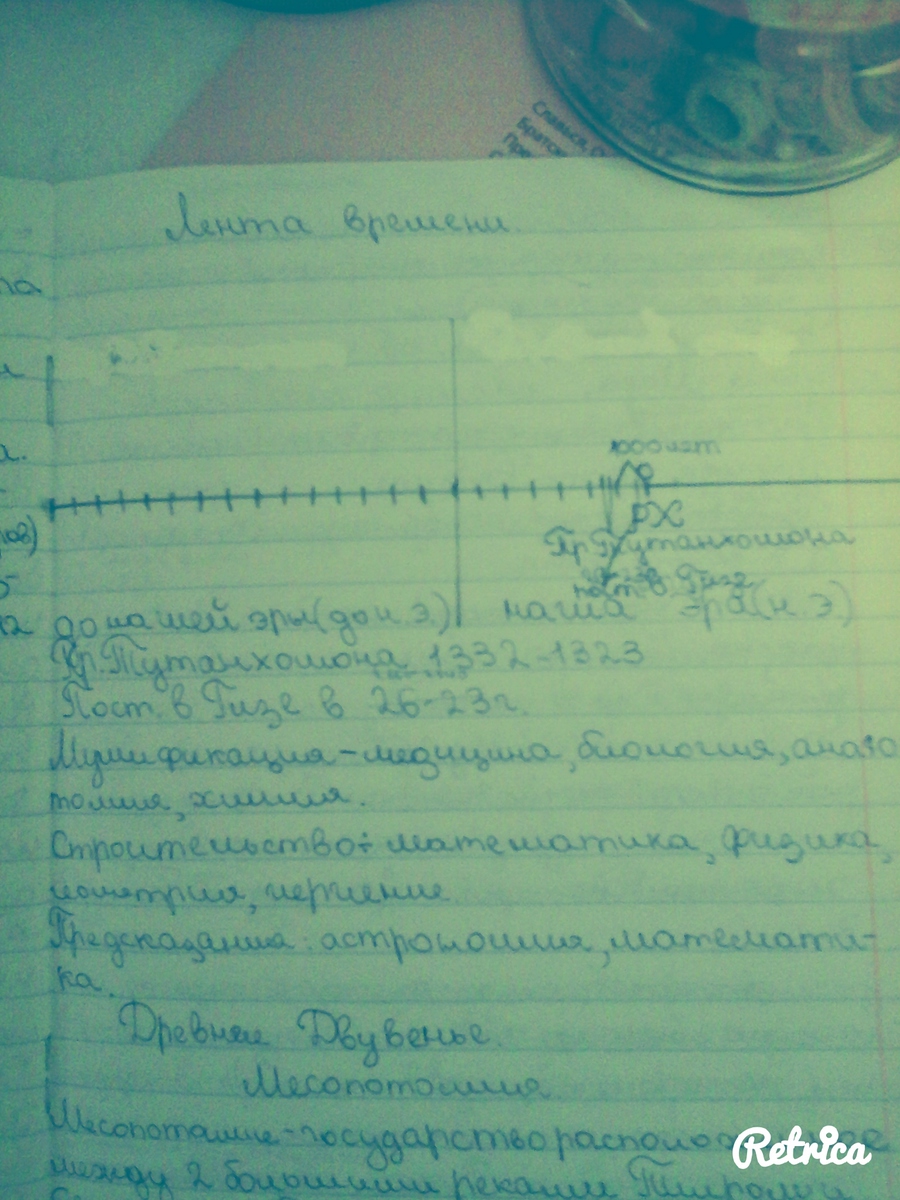 Славься, с
Братск
Пре
Лента времени.
па
а.
ров)
1000 лет
РХ
Пр. Тутанхомона
пост. в Гизе
до нашей эры (до н.э.) наша эра (н.э)
Пр. Тутанхомона 1332-1323
Пост. в Гизе в 26-23г.
Мумификация - медицина, биология, анато
томия, химия.
Строительство: математика, физика,
иометрия, черчение.
Предсказания: астрономия, математи-
ка.
Древнее Двуречье.
Месопотомия
Месопотамие - государство
между 2 большими реками
Retrica